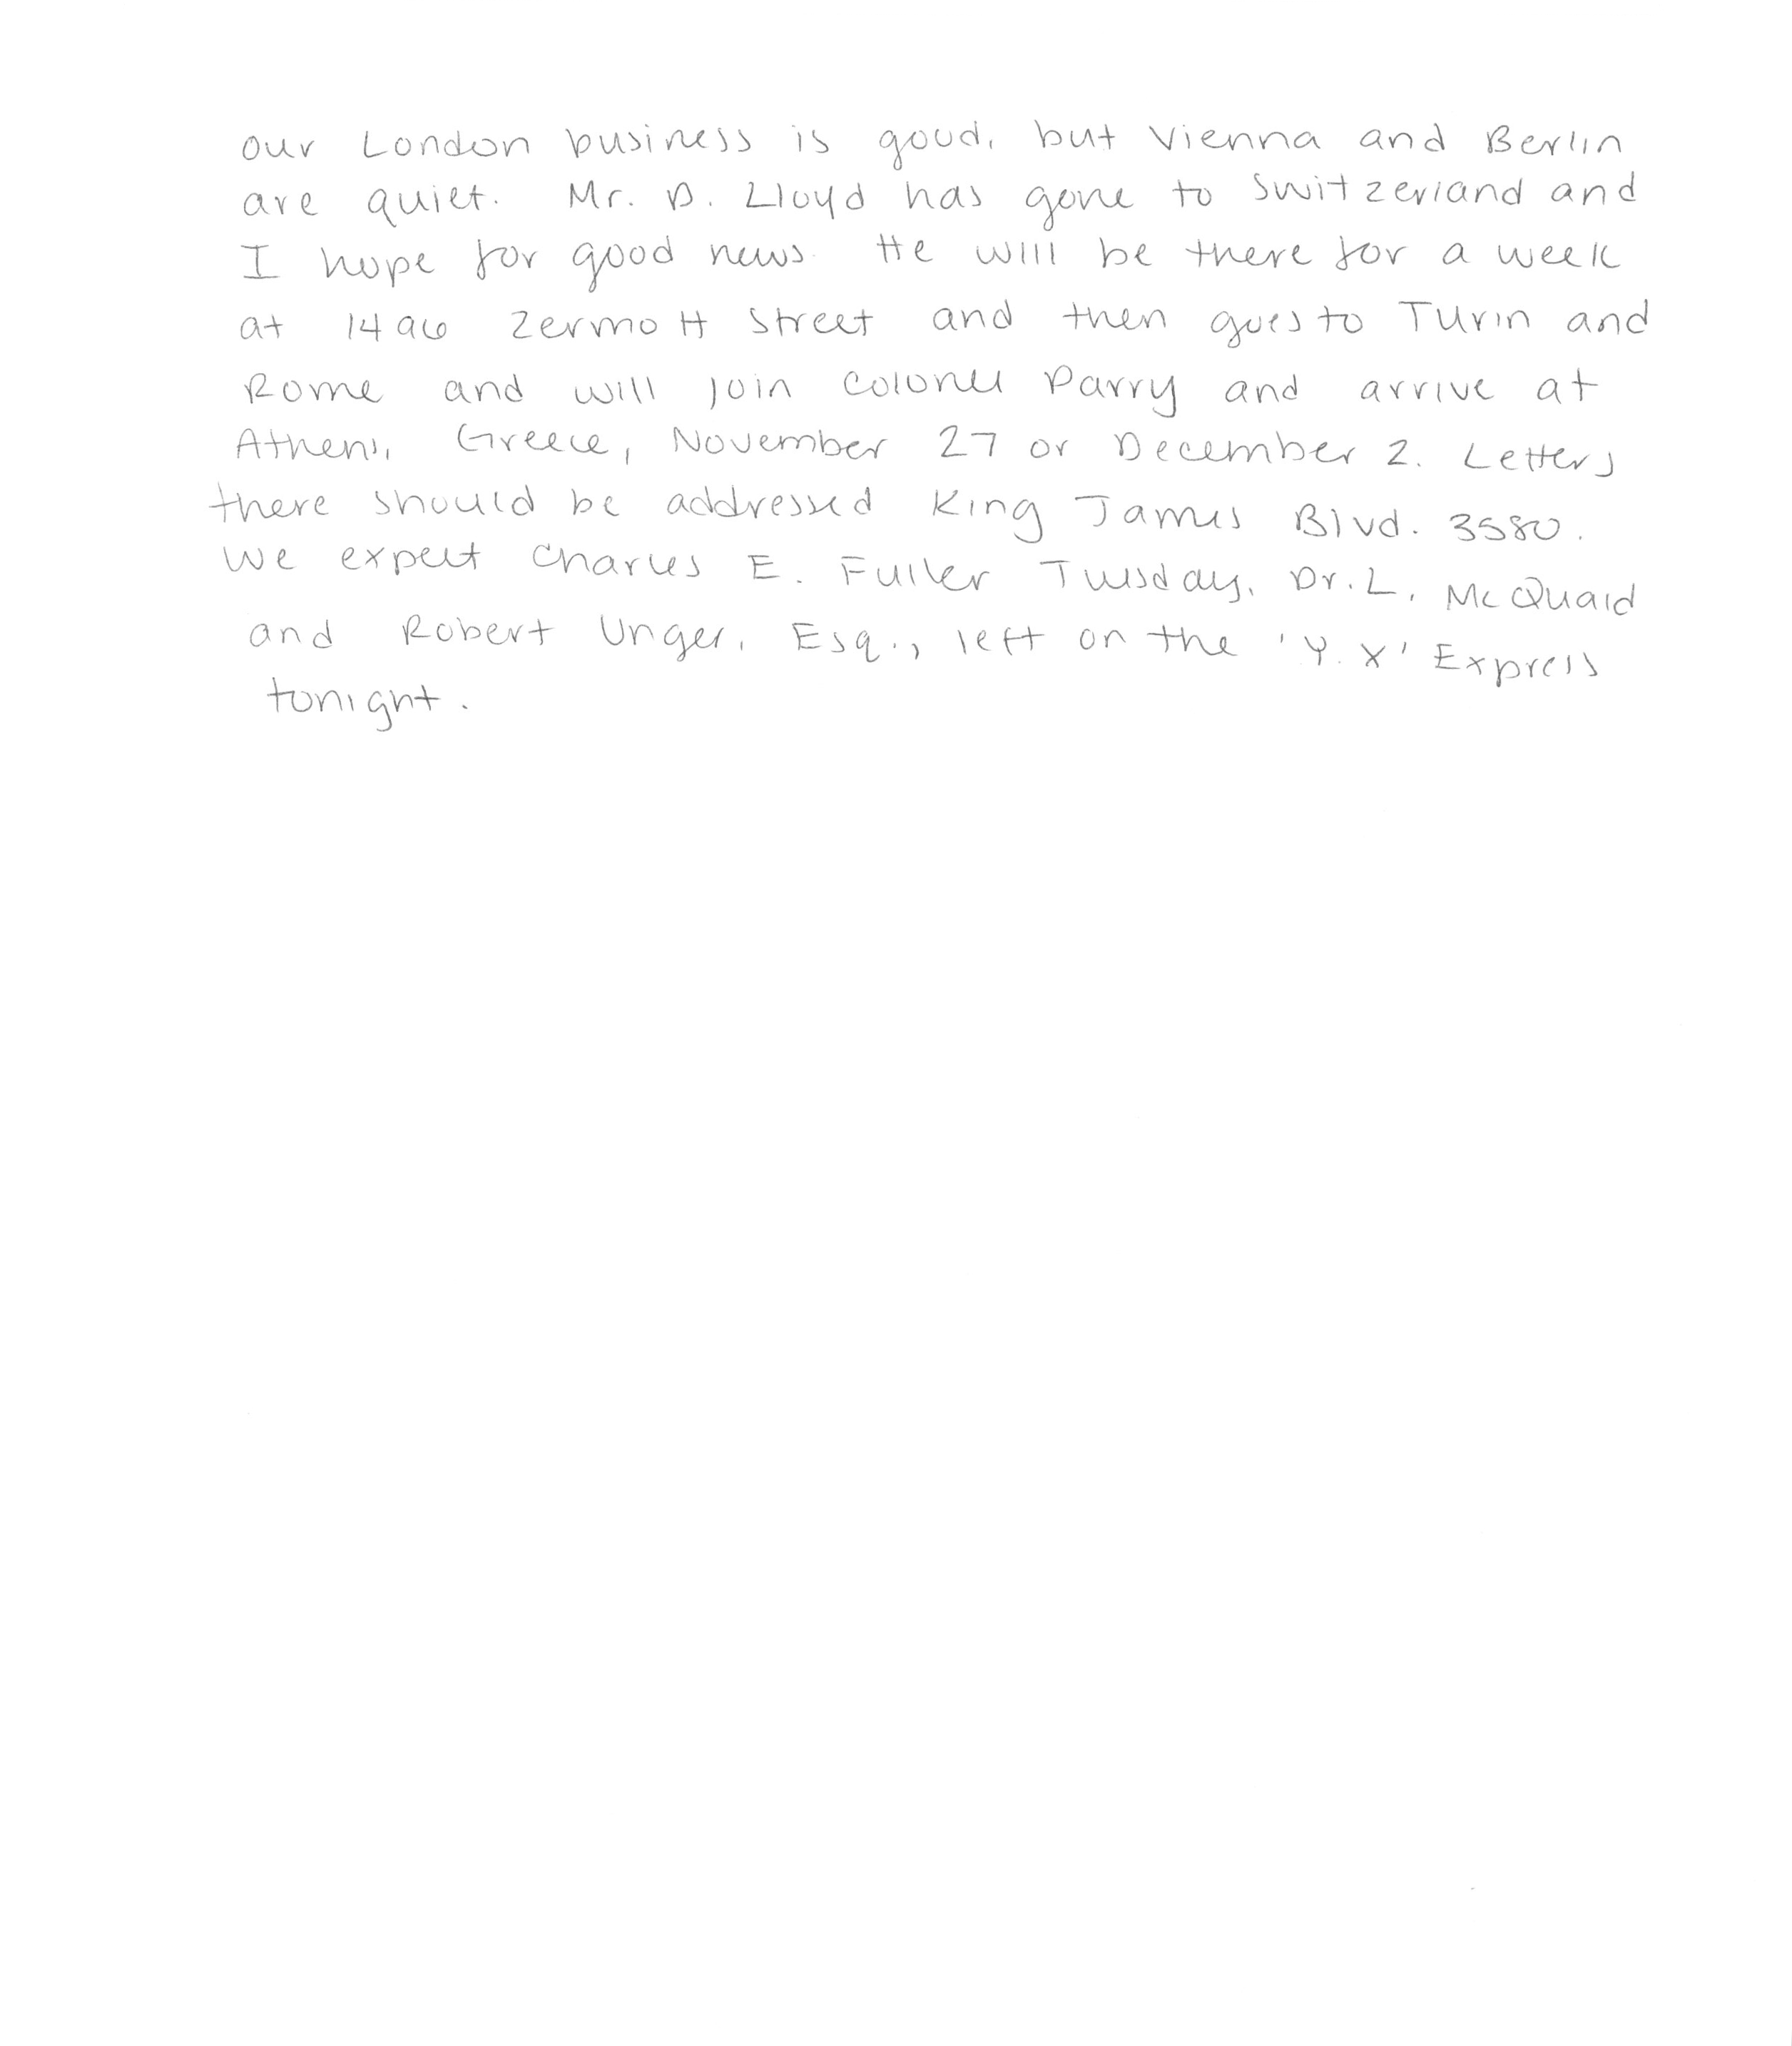 Our London business is good, but Vienna and Berlin
are quiet. Mr. D. Lloyd has gone to Switzerland and
I hope for good news. He will be there for a week
at 1496 Zermott Street and then goes to Turin and
Rome and will join Colonel Parry and arrive at
Athens, Greece, November 27 or December 2. Letters
there should be addressed King James Blvd. 3580.
We expect Charles E. Fuller Tuesday. Dr. L. McQuaid
and Robert Unger, Esq., left on the 'Y.X' Express
tonight.